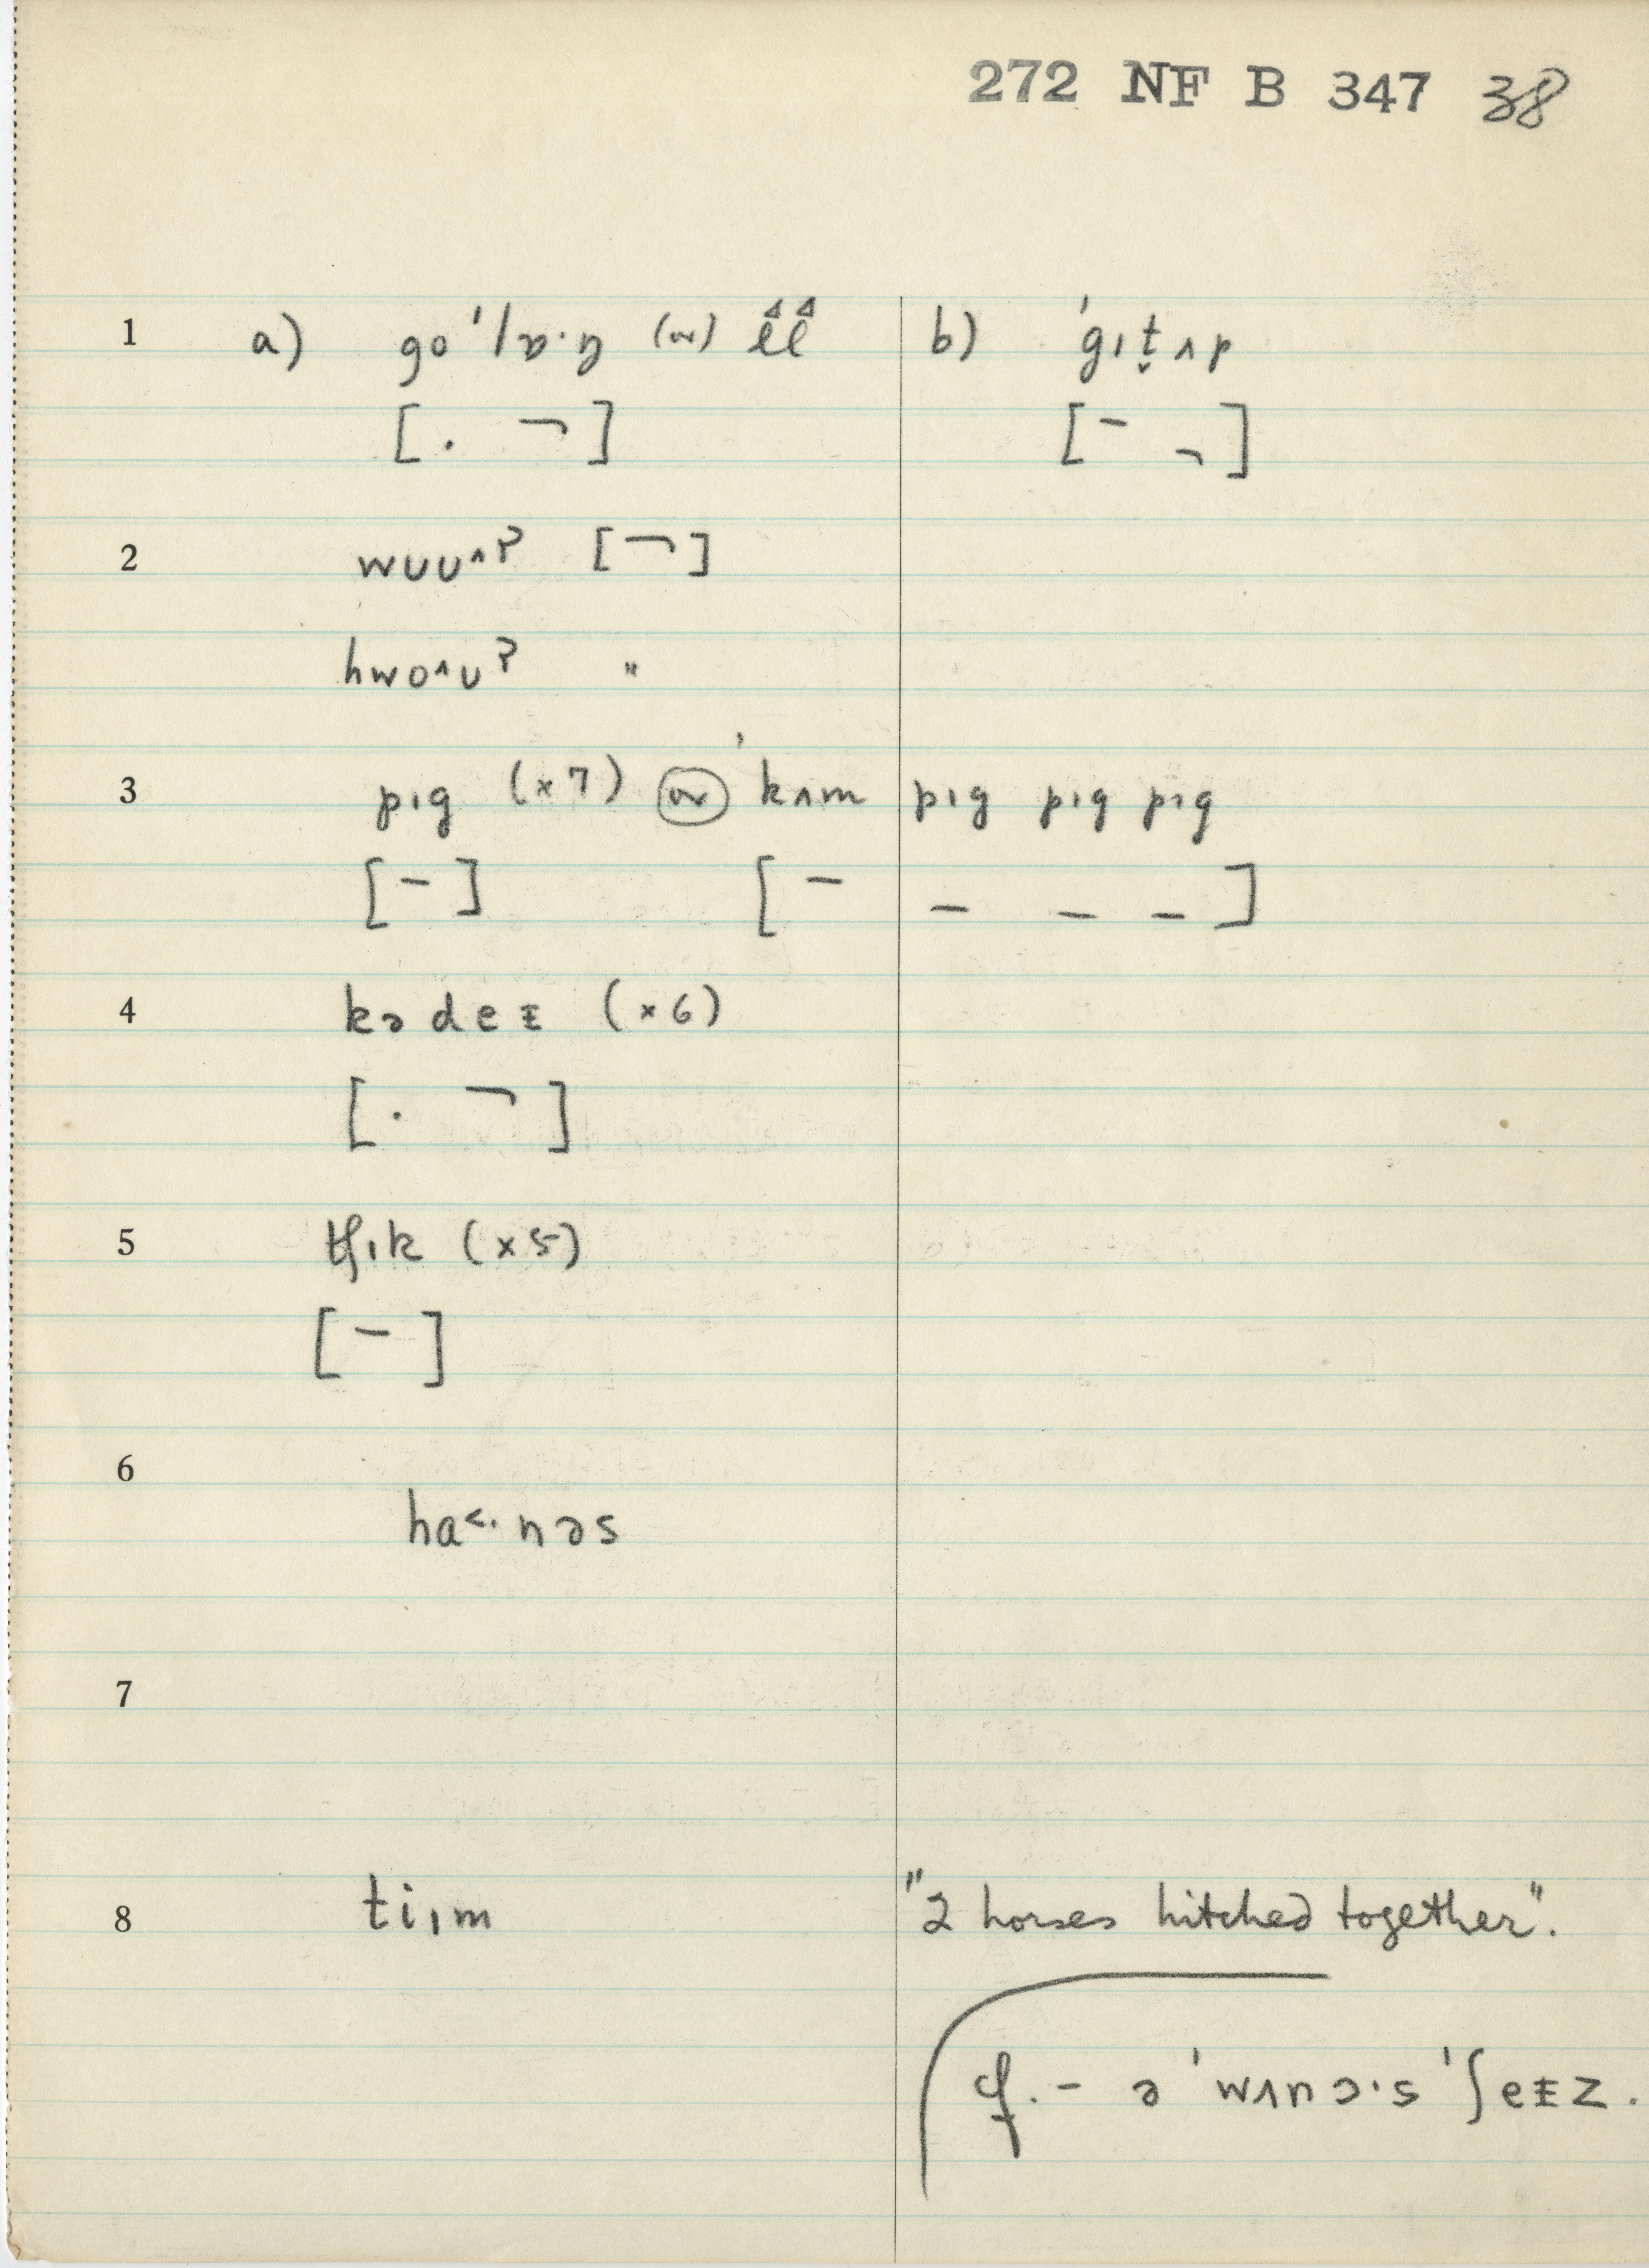 272 NF B 347 38
1 a) go ˈlɒ·ŋ (or) l̂l̂ b) ˈgɪt̬ʌp
[. ¬] [- ¬]
2 wʊʊ^ʔ [¬]
hwo^ʊʔ "
3 pɪg (x7) or ˈkʌm pɪg pɪg pɪg
[-] [- - - -]
4 kədeɪ (x6)
[. ¬]
5 tʃɪk (x5)
[-]
6
ha<·nəs
7
8 tiɪm "2 horses hitched together".
cf. - ə ˈwʌnɔ·s ˈʃeɪz.